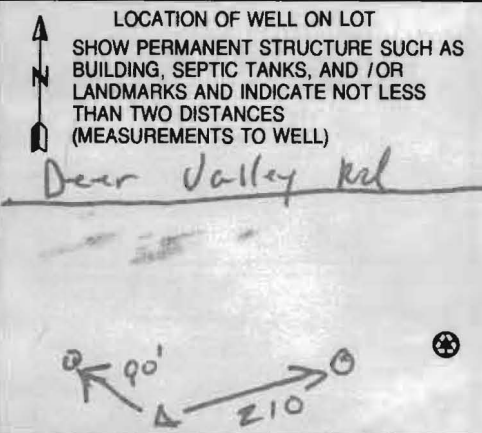 LOCATION OF WELL ON LOT
SHOW PERMANENT STRUCTURE SUCH AS
BUILDING, SEPTIC TANKS, AND / OR
LANDMARKS AND INDICATE NOT LESS
THAN TWO DISTANCES
(MEASUREMENTS TO WELL)
N
Deer Valley Rd
90'
210